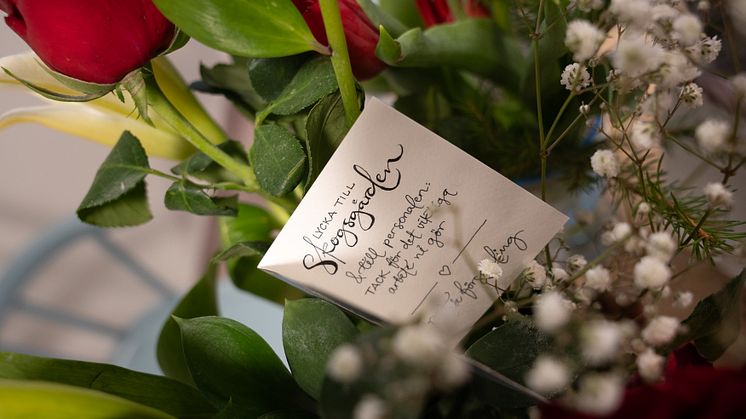 LYCKA TILL
Skogsgården
& till personalen:
TACK för det viktiga
arbete ni gör